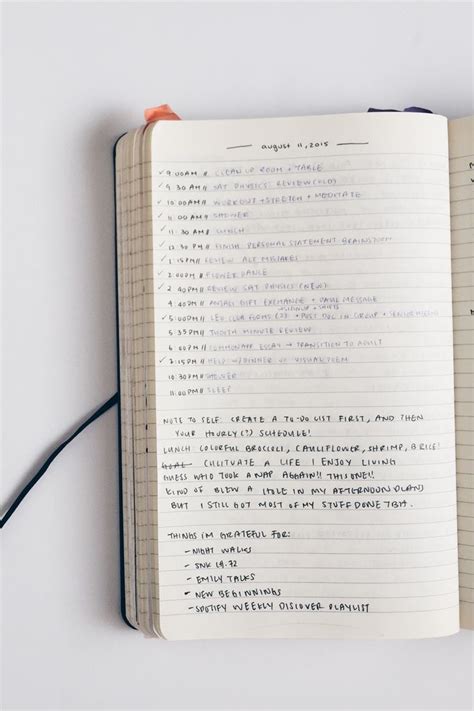 august 11, 2015
✓ 9:00AM // CLEAN UP ROOM + TABLE
✓ 9:30AM // SAT PHYSICS: REVIEW (OLD)
✓ 10:00AM // WORKOUT + STRETCH + MEDITATE
✓ 11:00AM // SHOWER
✓ 11:30AM // LUNCH
✓ 12:30PM // FINISH PERSONAL STATEMENT BRAINSTORM
✓ 1:15PM // REVIEW MISTAKES
✓ 2:00PM // FLOWER DANCE
✓ 2:40PM // REVIEW SAT PHYSICS (NEW)
4:40PM // GIFT EXCHANGE + PAGE MESSAGE
✓ 5:00PM // LEO CLUB FORMS (2) + POST DOC IN GROUP +
5:35PM // MINUTE REVIEW
6:00PM // COMMONAPP ESSAY → TRANSITION TO ADULT
✓ 7:15PM // HELP W/ DINNER
10:30PM // SHOWER
11:00PM // SLEEP
NOTE TO SELF: CREATE A TO-DO LIST FIRST, AND THEN
YOUR HOURLY (?) SCHEDULE!
LUNCH: COLORFUL BROCCOLI, CAULIFLOWER, SHRIMP, & RICE!
GOAL: CULITUATE A LIFE I ENJOY LIVING
GUESS WHO TOOK A NAP AGAIN!! THIS ONE!!
KIND OF BLEW A HOLE IN MY AFTERNOON PLANS
BUT I STILL GOT MOST OF MY STUFF DONE TGH.
THINGS I'M GRATEFUL FOR:
- NIGHT WALKS
- SNK CH. 72
- EMILY TALKS
- NEW BEGINNINGS
- SPOTIFY WEEKLY DISCOVER PLAYLIST